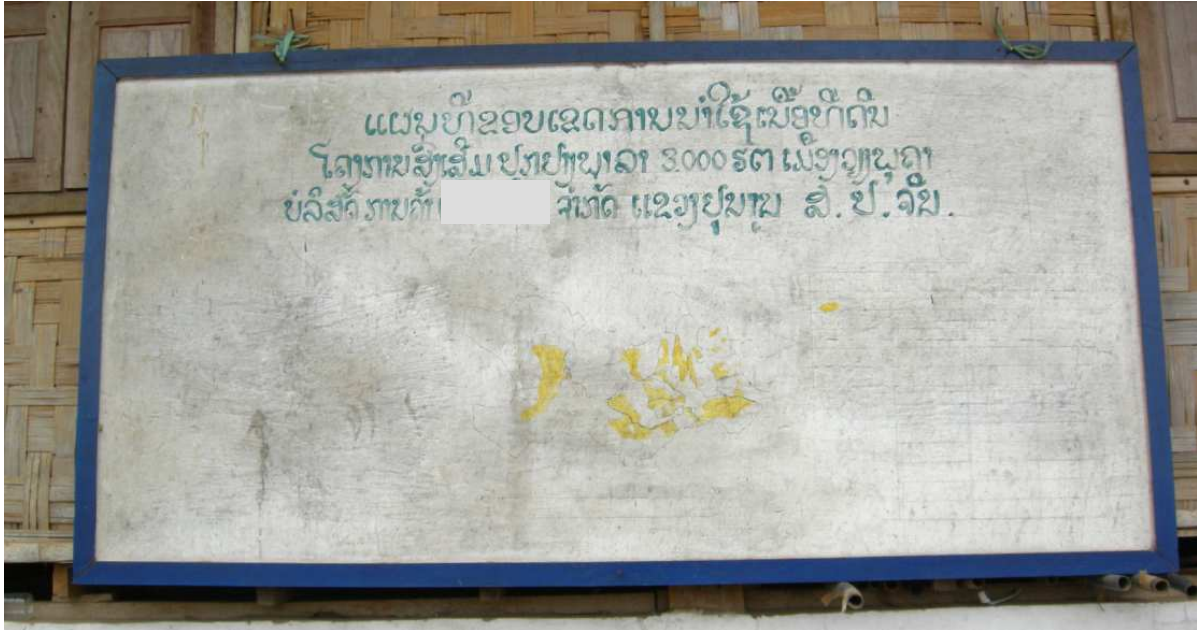 N
ແຜນທີ່ຂອບເຂດການນຳໃຊ້ເນື້ອທີ່ດິນ
ໂຄງການສົ່ງເສີມ ປູກຢາງພາລາ 3.000 ຮຕ ເມືອງວຽງພູຄາ
ບໍລິສັດ ການຄ້າ ຈຳກັດ ແຂວງຢຸນານ ສ. ປ. ຈີນ.